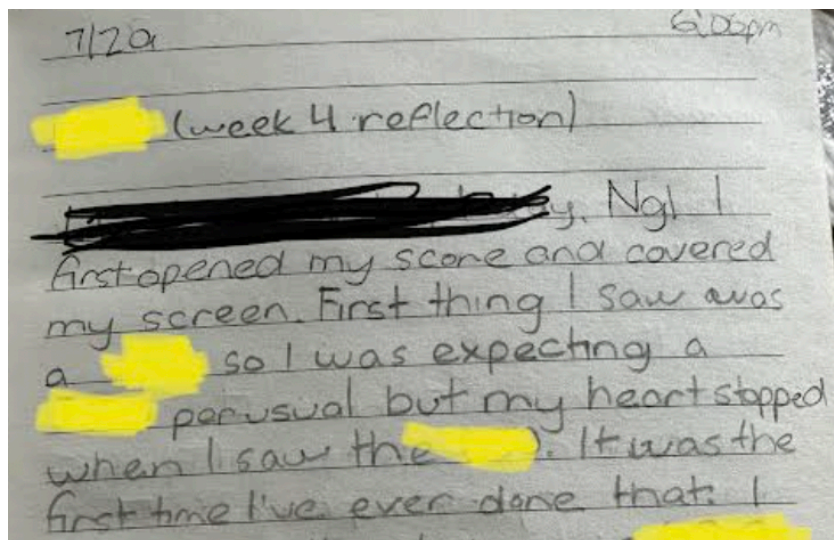 7/29 6:06pm
(week 4 reflection)
Ngl I
first opened my score and covered
my screen. First thing I saw was
a so I was expecting a
per usual but my heart stopped
when I saw the ). It was the
first time I've ever done that. I